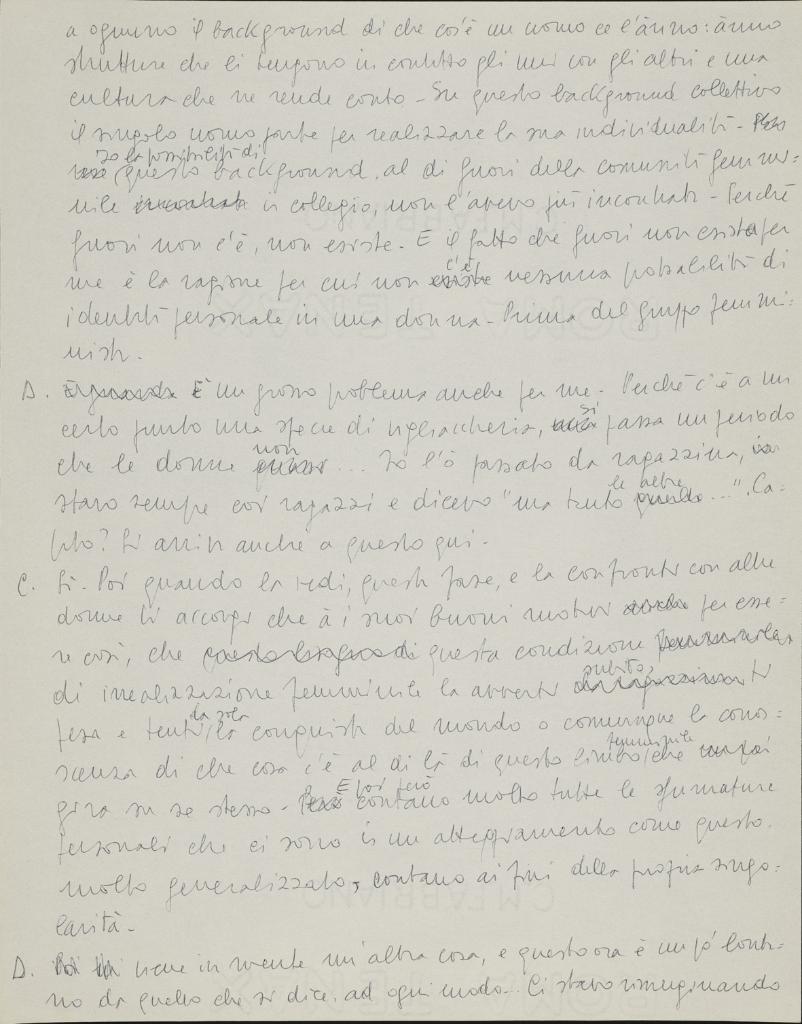 a ognuno il background di che cos'è un uomo ce l'ànno: ànno
strutture che li tengono in contatto gli uni con gli altri e una
cultura che ne rende conto - Su questo background collettivo
il singolo uomo parte per realizzare la sua individualità -
Io la possibilità di
questo background, al di fuori della comunità femmi=
nile incontrata in collegio, non l'avevo più incontrata - Perché
fuori non c'è, non esiste. E il fatto che fuori non esista per
c'è
me è la ragione per cui non esiste nessuna possibilità di
identità personale in una donna - Prima del gruppo femmi=
nista.
D. È un grosso problema anche per me - Perché c'è a un
si
certo punto una specie di vigliaccheria, passa un periodo
non
che le donne ... Io l'ò passato da ragazzina,
le altre
stavo sempre coi ragazzi e dicevo "ma tanto quelle ...". Ca=
pito? Si arriva anche a questo qui -
C. Sì. Poi quando la vedi, questa fase, e la confronti con altre
donne ti accorgi che à i suoi buoni motivi anche per esse=
re così, che questa condizione femminile
subito,
di irrealizzazione femminile la avverti da ragazzina ti
da sola
pesa e tenti la conquista del mondo o comunque la cono=
femminile
scenza di che cosa c'è al di là di questo limbo che
E poi però
gira su se stesso - contano molto tutte le sfumature
personali che ci sono in un atteggiamento come questo.
molto generalizzato, contano ai fini della propria singo=
larità -
D. viene in mente un'altra cosa, e questa ora è un po' lonta=
no da quello che si dice, ad ogni modo... Ci stavo rimuginando